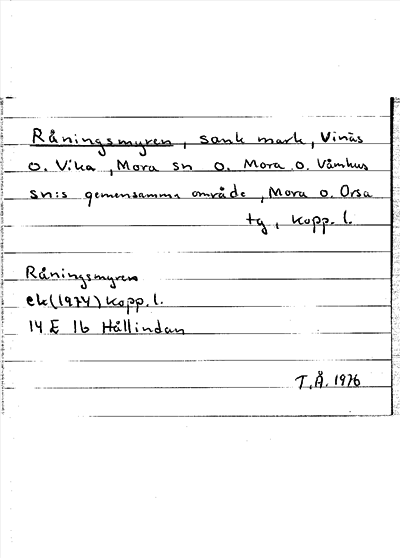 Råningsmyren, sank mark, Vinäs
o. Vika, Mora sn o. Mora o. Våmhus
sn:s gemensamma område, Mora o. Orsa
tg, Kopp. l.
Råningsmyren
ek (1974) Kopp. l.
14 E 1b Hållindan
T.Å. 1976